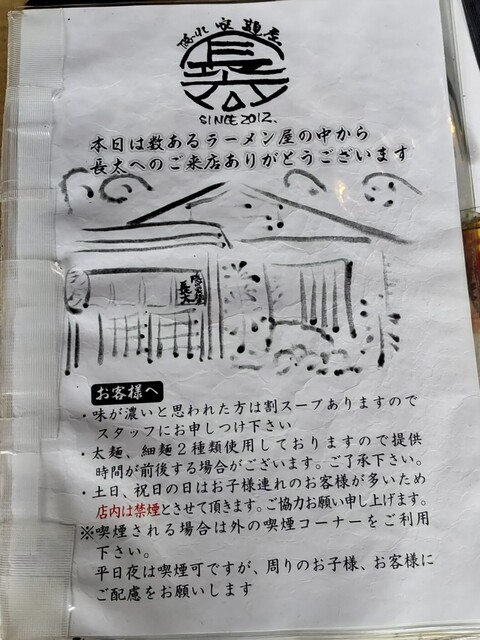 隠れ家麺屋
長太
SINCE 2012.
本日は数あるラーメン屋の中から
長太へのご来店ありがとうございます
長太
お客様へ
・味が濃いと思われた方は割スープありますので
スタッフにお申しつけ下さい
・太麺、細麺2種類使用しておりますので提供
時間が前後する場合がございます。ご了承下さい。
・土日、祝日の日はお子様連れのお客様が多いため
店内は禁煙とさせて頂きます。ご協力お願い申し上げます。
※喫煙される場合は外の喫煙コーナーをご利用
下さい。
平日夜は喫煙可ですが、周りのお子様、お客様に
ご配慮をお願いします